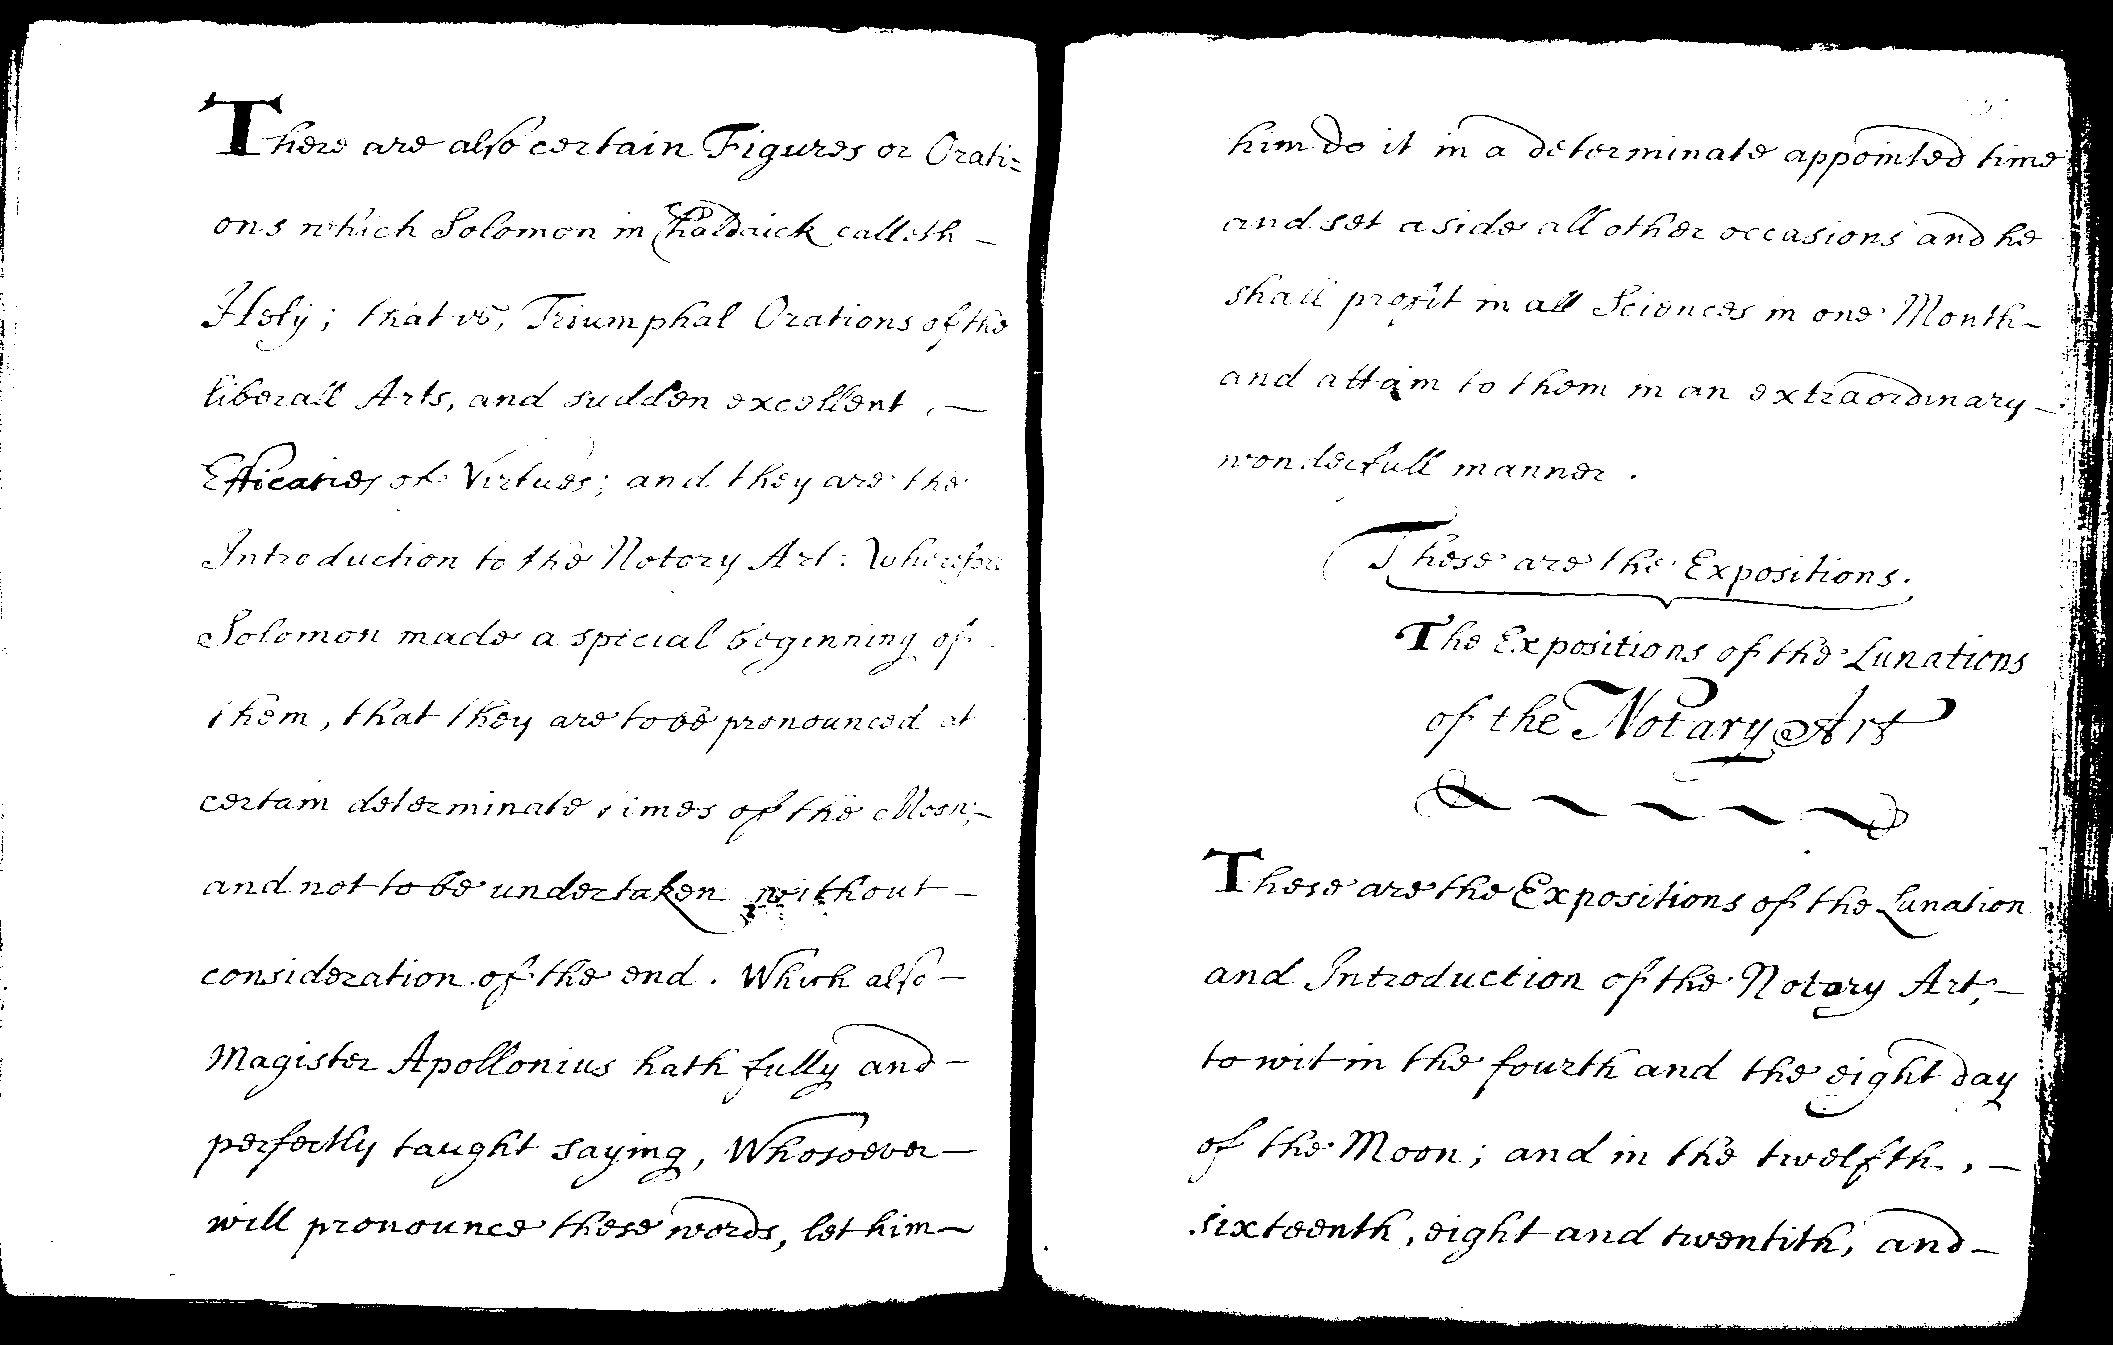 There are also certain Figures or Orati=
ons which Solomon in Chaldaick calleth –
Hely; that is, Triumphal Orations of the
liberall Arts, and sudden excellent, –
Efficacies of Virtues; and they are the
Introduction to the Notory Art: Wherefore
Solomon made a special beginning of
them, that they are to be pronounced at
certain determinate times of the Moon; –
and not to be undertaken without –
consideration of the end. Which also –
Magister Apollonius hath fully and –
perfectly taught saying, Whosoever –
will pronounce these words, let him –
him do it in a determinate appointed time
and set aside all other occasions and he
shall profit in all Sciences in one Month –
and attain to them in an extraordinary –
wonderfull manner.
These are the Expositions.
The Expositions of the Lunations
of the Notary Art
These are the Expositions of the Lunation
and Introduction of the Notory Art; –
to wit in the fourth and the eight day
of the Moon; and in the twelfth, –
sixteenth, eight and twentith, and –